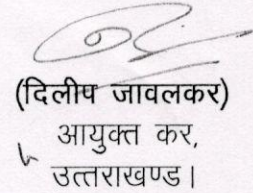 (दिलीप जावलकर)
आयुक्त कर,
उत्तराखण्ड।